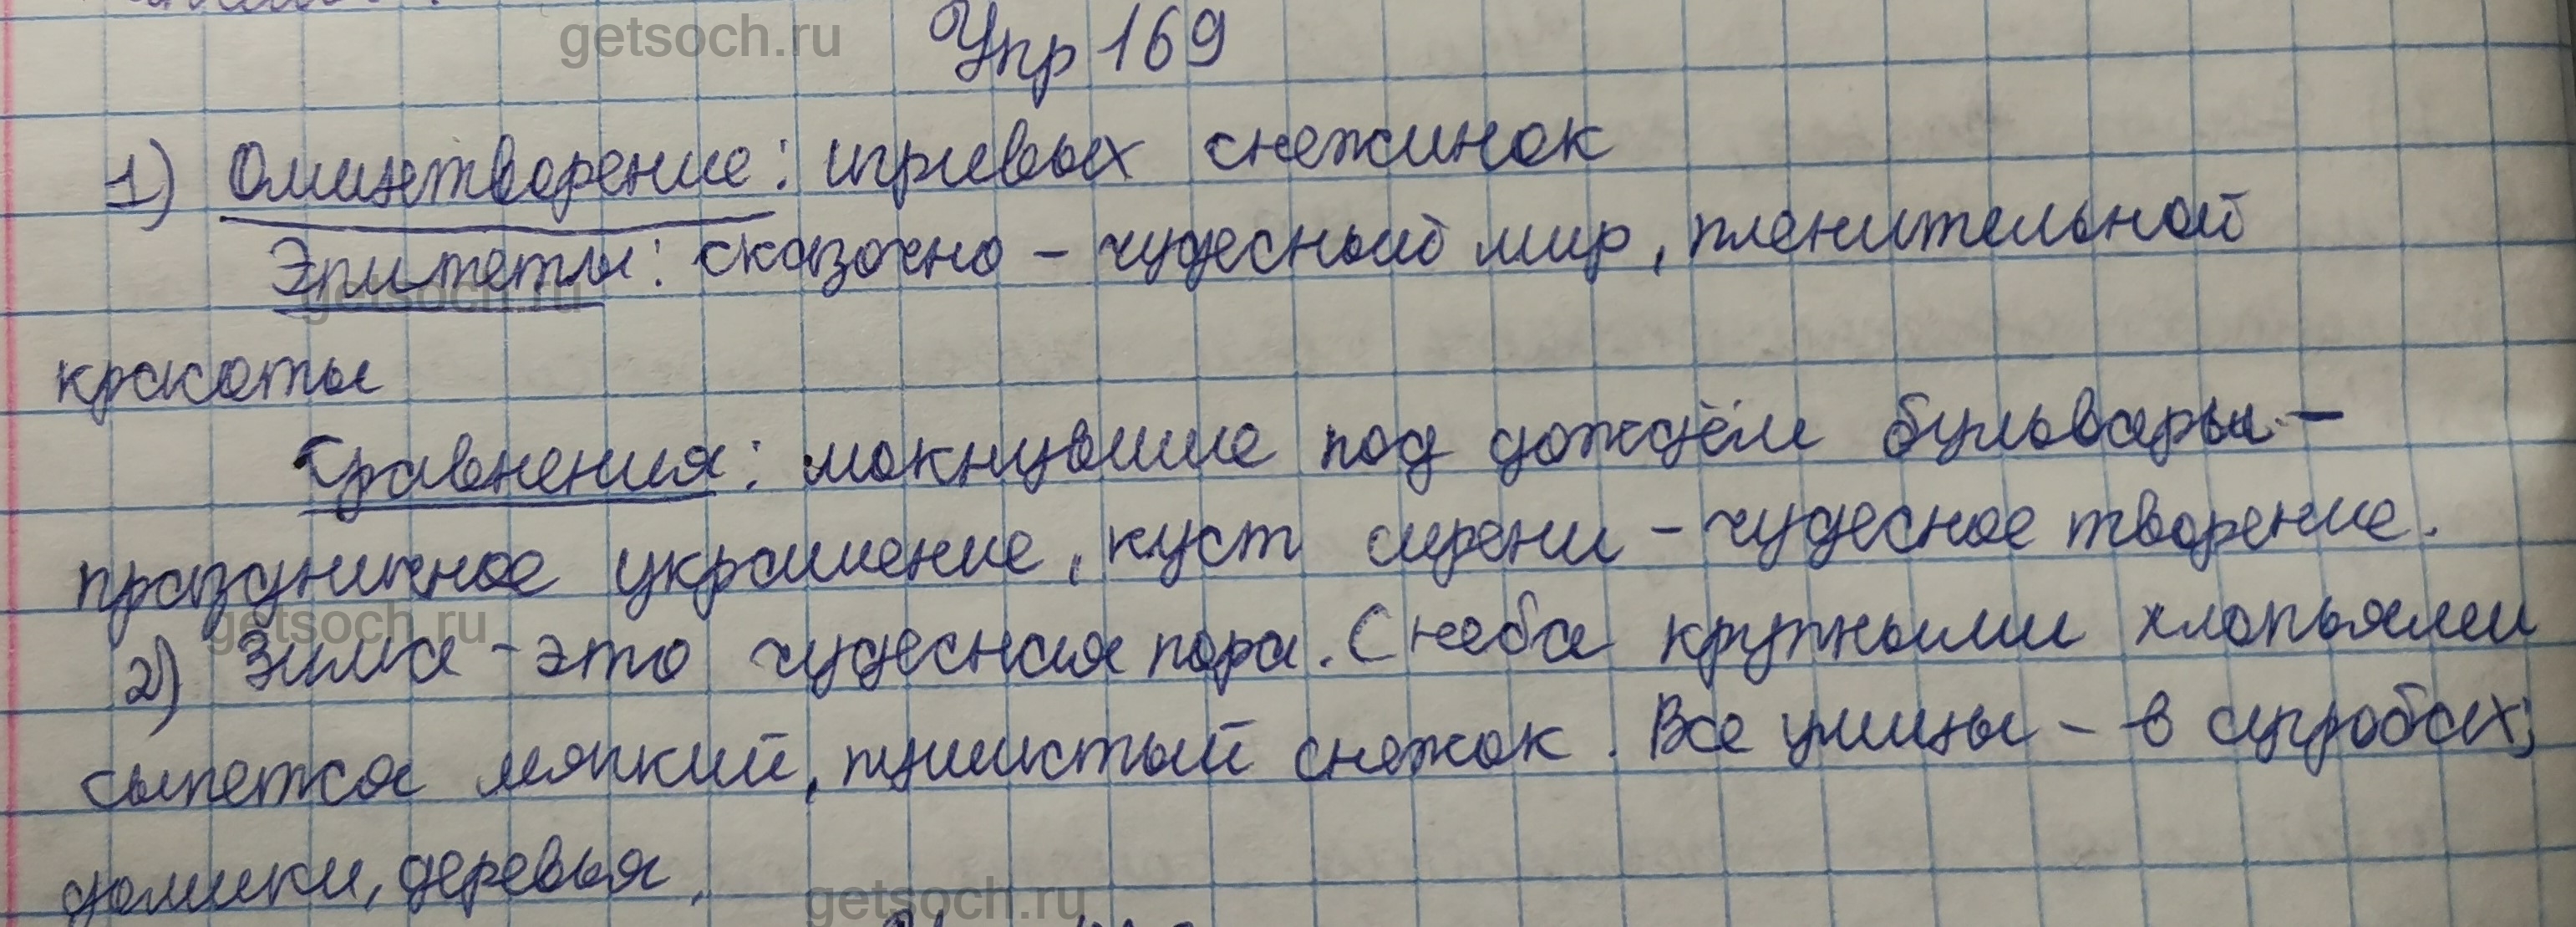 getsoch.ru
Упр 169
1) Олицетворение: игривых снежинок
Эпитеты: сказочно - чудесный мир, пленительной
getsoch.ru
красоты
Сравнения: мокнувшие под дождём бульвары -
праздничное украшение, куст сирени - чудесное творение.
getsoch.ru
2) Зима - это чудесная пора. С неба крупными хлопьями
сыпется мягкий, пушистый снежок. Все улицы - в сугробах,
домики, деревья.
getsoch.ru